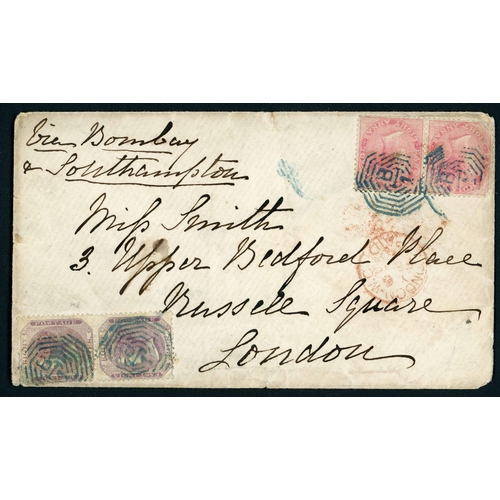 Via Bombay
& Southampton
Miss Smith
3. Upper Bedford Place
Russell Square
London
POSTAGE
B
1